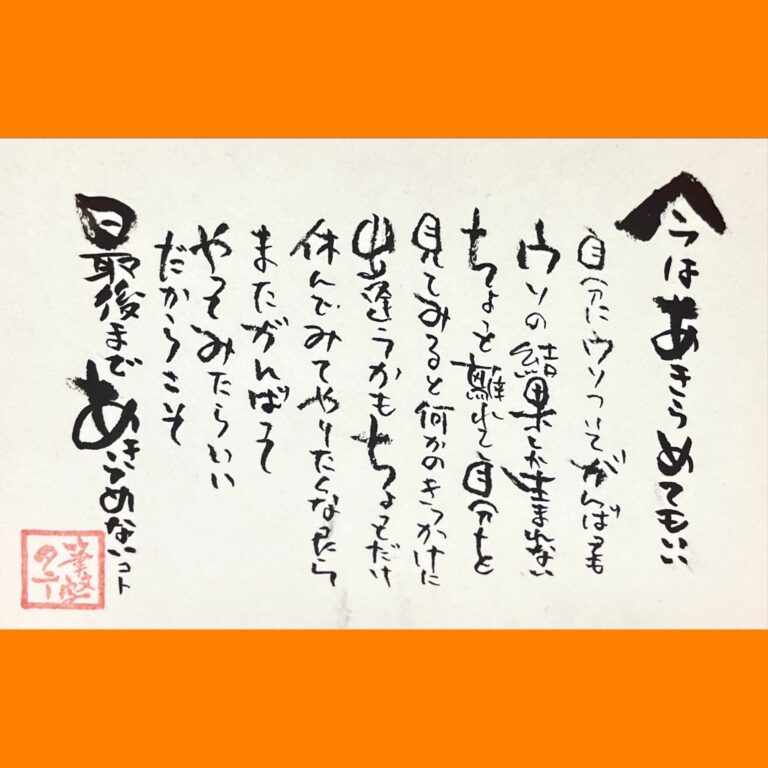 今はあきらめてもいい
自分にウソついてがんばっても
ウソの結果しか生まれない
ちょっと離れて自分を
見てみると何かのきっかけに
出逢うかもちょっとだけ
休んでみてやりたくなったら
またがんばって
やってみたらいい
だからこそ
最後まであきらめないコト